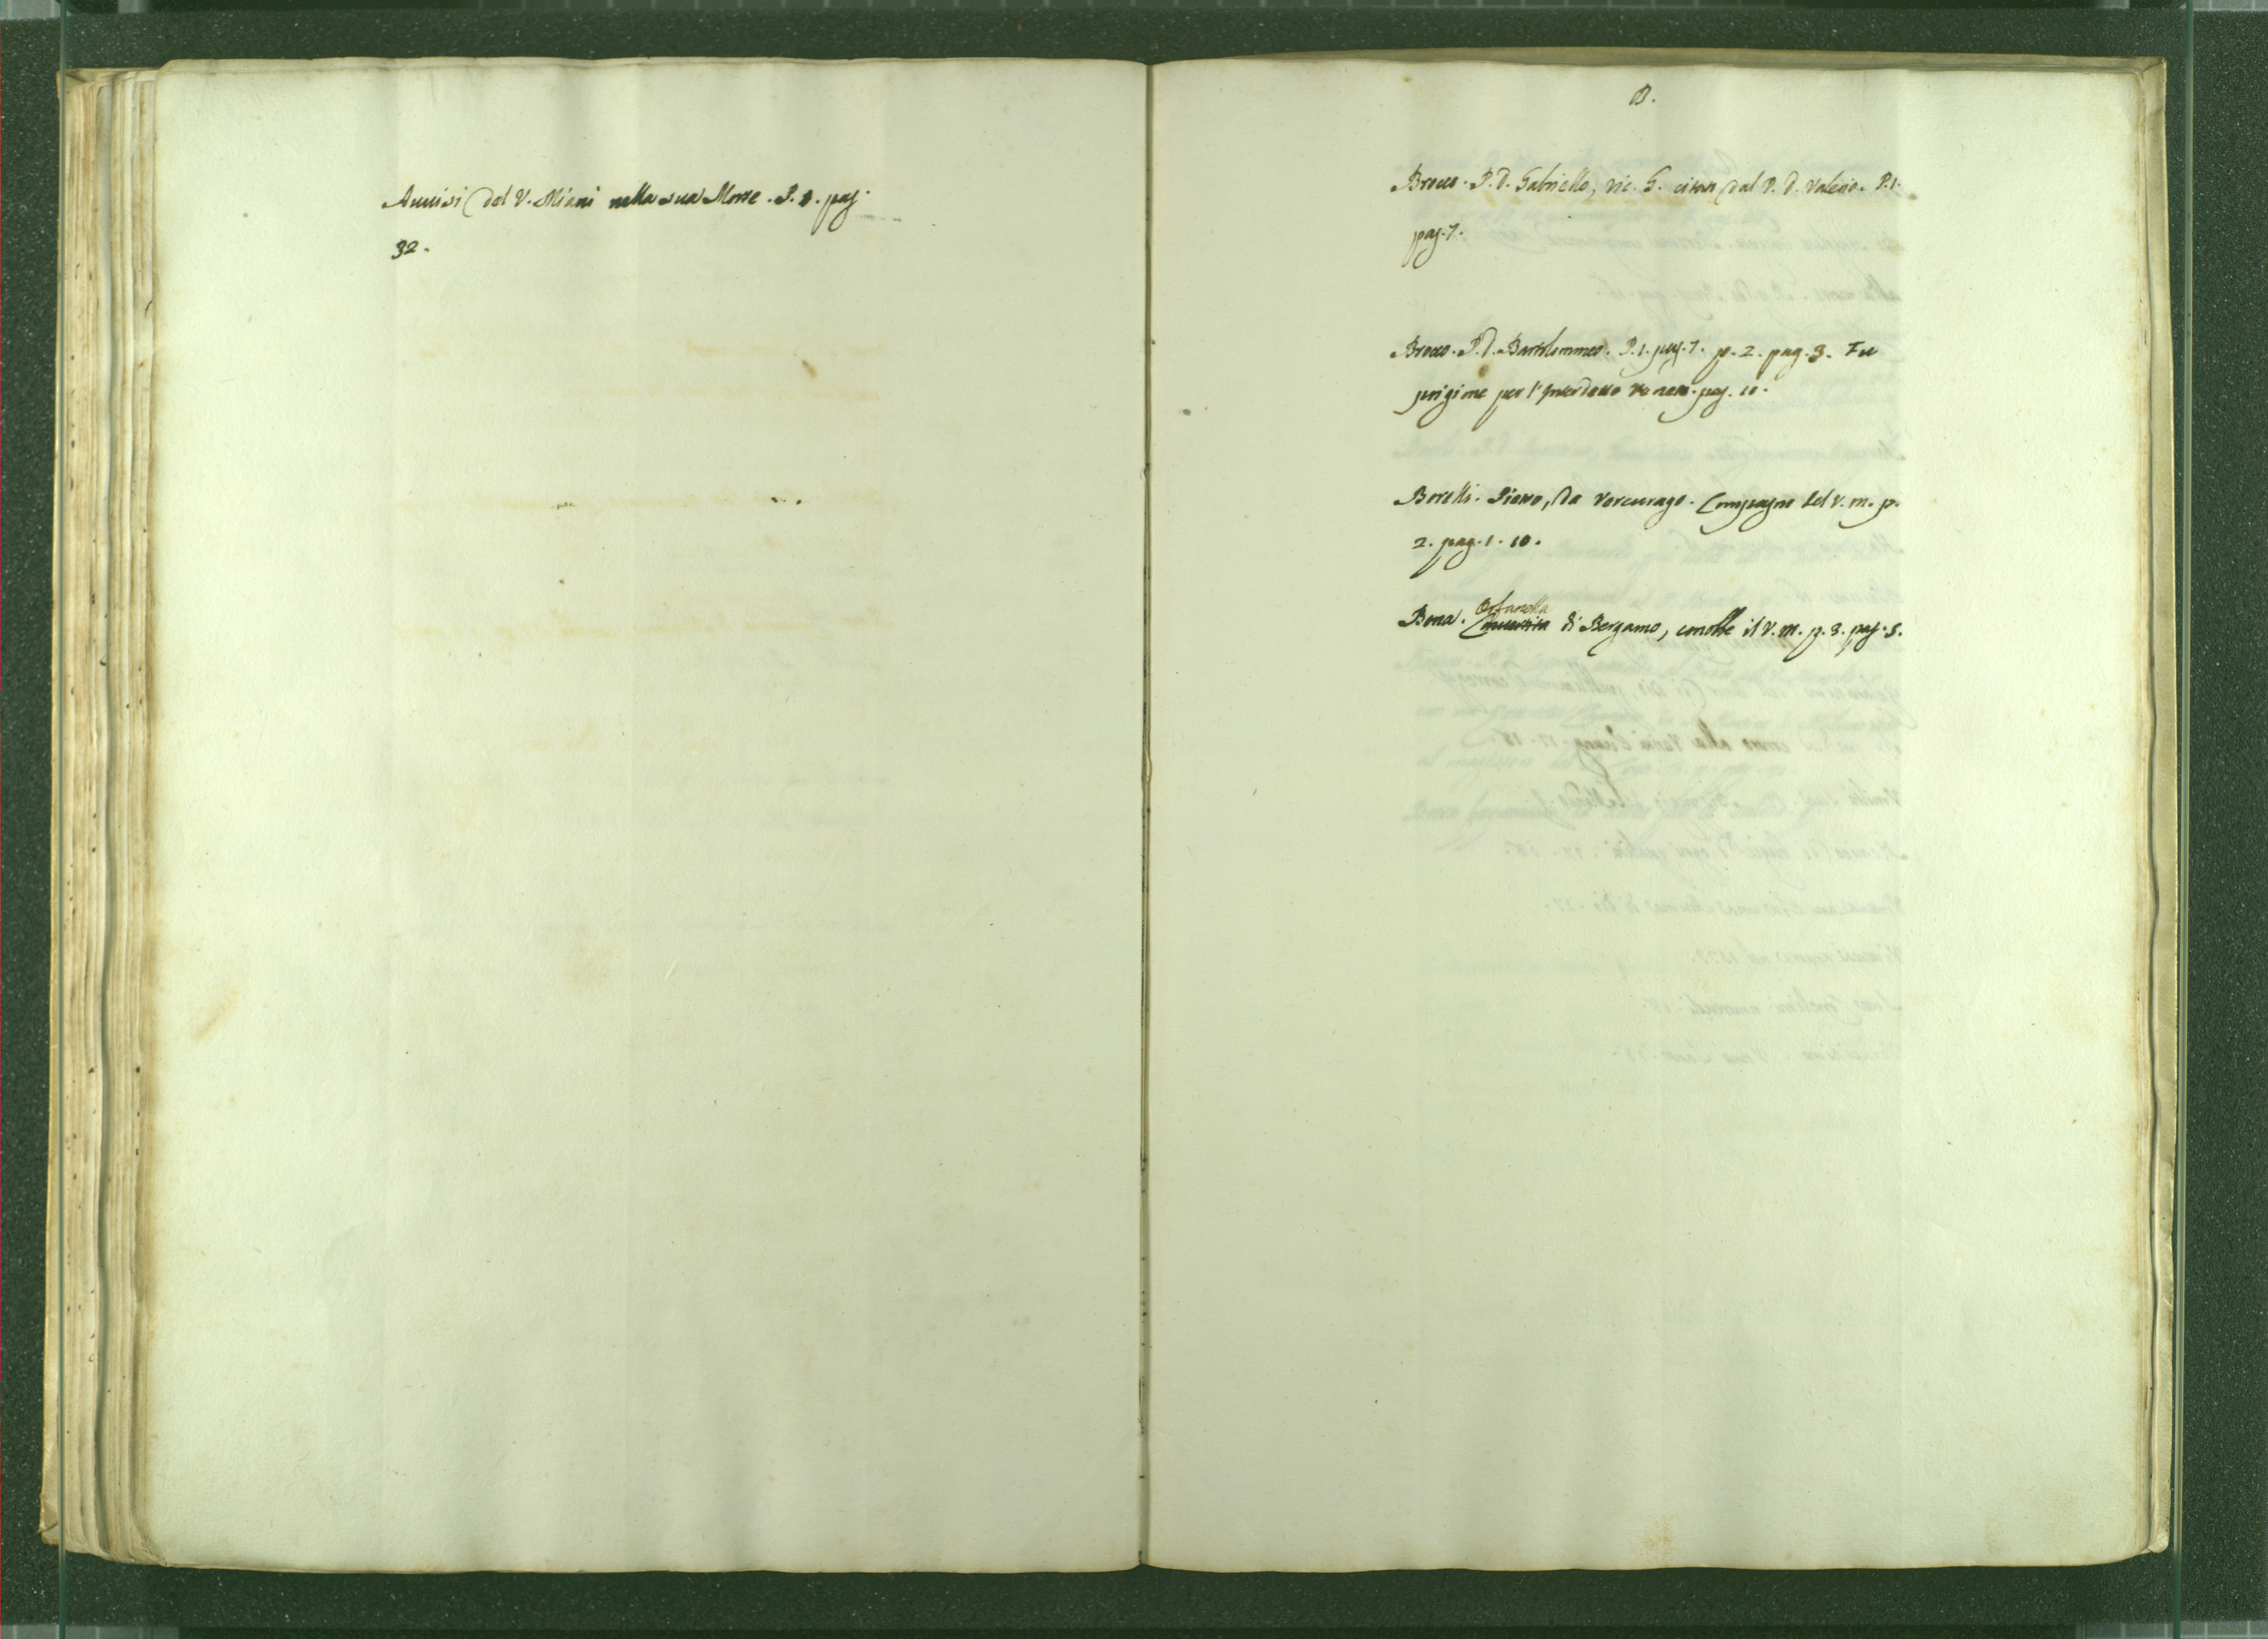 Auuisi del V. Miani nella sua Morte. P. 1. pag.
32.
B.
Brocco. P. D. Gabriello, vic. G. citato dal P. D. Valerio. P. 1.
pag. 7.
Brocco. P. D. Bartolommeo. P. 1. pag. 7. p. 2. pag. 3. Fu
prigione per l'Interdetto Veneto. pag. 10.
Borelli. Pietro, da Vercurago. Compagno del V. M. p.
2. pag. 1. 10.
Orfanella
Bona. Convertita di Bergamo, conobbe il V. M. p. 3. pag. 5.